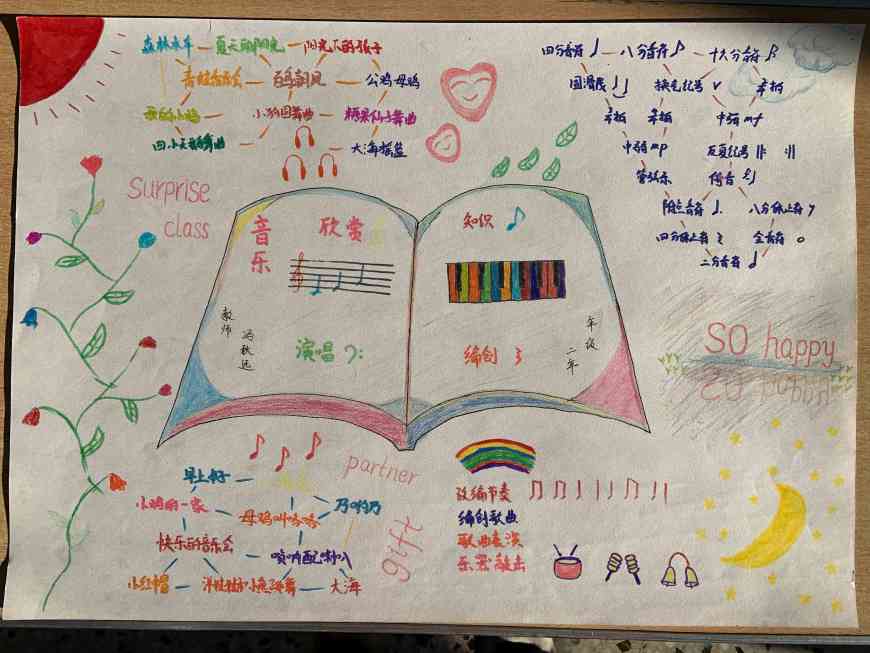 森林水车 夏天的阳光 阳光下的孩子
青蛙音乐会 百鸟朝凤 公鸡母鸡
小狗圆舞曲 糖果仙子舞曲
四小天鹅舞曲 大海摇篮
四分音符 八分音符 十六分音符
圆滑线 换气记号 V
中弱 mp 中强 mf
反复记号
管弦乐 倚音
附点音符 八分休止符
四分休止符 全音符
二分音符
Surprise
class
音乐
欣赏
演唱
教师
冯秋远
知识
编创
年级
二年
SO happy
partner
gift
早上好
小鸡的一家 母鸡叫咯咯
快乐的音乐会 唢呐配喇叭
小红帽 大海
改编节奏
编创歌曲
歌曲表演
乐器敲击